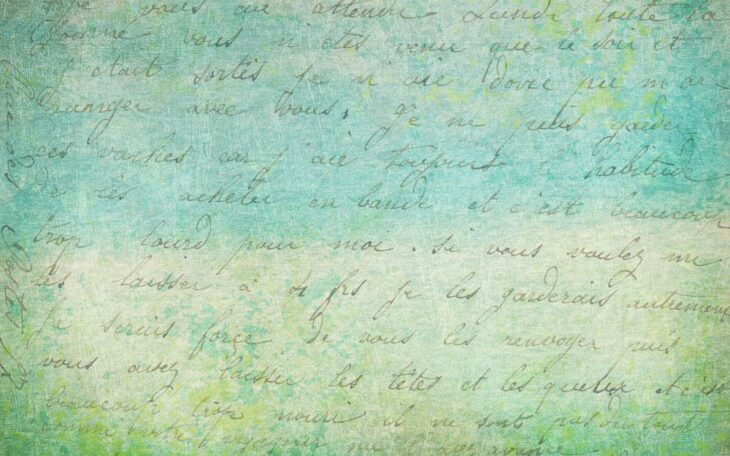 vous ai attendu Lundi toute la
journée vous n'êtes venu que le soir et
j'étais sortis je n'aie donc pu m'ar-
ranger avec vous. Je ne puis garder
ces vaches car j'aie toujours l'habitude
de les acheter en bande et c'est beaucoup
trop lourd pour moi. si vous voulez me
les laisser à 4 frs je les garderais autrement
je serais forcé de vous les renvoyer puis
vous avez laisser les têtes et les queux et c'est
beaucoup trop nourri il ne sont pas du tout
comme